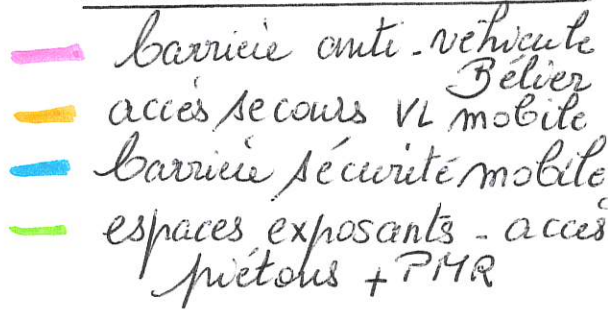 barrière anti-véhicule
Bélier
accès secours VL mobile
barrière sécurité mobile
espaces exposants - accès
piétons + PMR